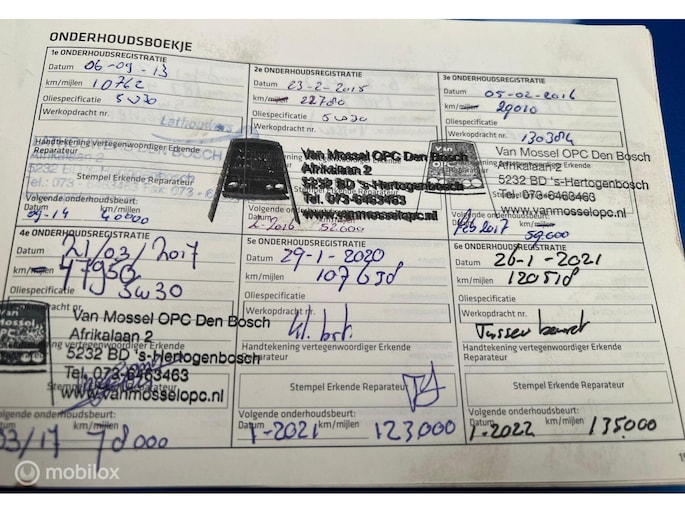 ONDERHOUDSBOEKJE
1e ONDERHOUDSREGISTRATIE
Datum 06-09-13
km/mijlen 10762
Oliespecificatie 5W30
Werkopdracht nr.
Handtekening vertegenwoordiger Erkende
Reparateur
Afrikalaan 2
Stempel Erkende Reparateur
Volgende onderhoudsbeurt:
09-14 km/mijlen 40000
2e ONDERHOUDSREGISTRATIE
Datum 23-2-2015
km/mijlen 22780
Oliespecificatie 5W30
Werkopdracht nr.
Van Mossel OPC Den Bosch
Afrikalaan 2
5232 BD 's-Hertogenbosch
Tel. 073-6463463
www.vanmosselopc.nl
2-2016 52.000
3e ONDERHOUDSREGISTRATIE
Datum 05-02-2016
km/mijlen 29010
Oliespecificatie
Werkopdracht nr. 130384
Van Mossel OPC Den Bosch
Afrikalaan 2
5232 BD 's-Hertogenbosch
Tel. 073-6463463
www.vanmosselopc.nl
Feb 2017 59.000
4e ONDERHOUDSREGISTRATIE
Datum 21/03/2017
km/mijlen 47950
Oliespecificatie 5W30
Werkopdracht nr.
Van Mossel OPC
Van Mossel OPC Den Bosch
Afrikalaan 2
5232 BD 's-Hertogenbosch
Tel. 073-6463463
www.vanmosselopc.nl
Volgende onderhoudsbeurt:
03/17 km/mijlen 78000
5e ONDERHOUDSREGISTRATIE
Datum 29-1-2020
km/mijlen 107638
Oliespecificatie
Werkopdracht nr. kl. brt.
Handtekening vertegenwoordiger Erkende
Reparateur
Stempel Erkende Reparateur
Volgende onderhoudsbeurt:
1-2021 km/mijlen 123.000
6e ONDERHOUDSREGISTRATIE
Datum 26-1-2021
km/mijlen 120518
Oliespecificatie
Werkopdracht nr. Tussen beurt
Handtekening vertegenwoordiger Erkende
Reparateur
Stempel Erkende Reparateur
Volgende onderhoudsbeurt:
1-2022 km/mijlen 135000
mobilox